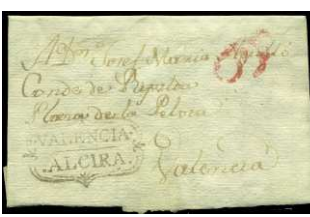 A Dn Josef Maria
Conde de Ripalda
Plaza de la Pelota
VALENCIA
ALCIRA.
Valencia